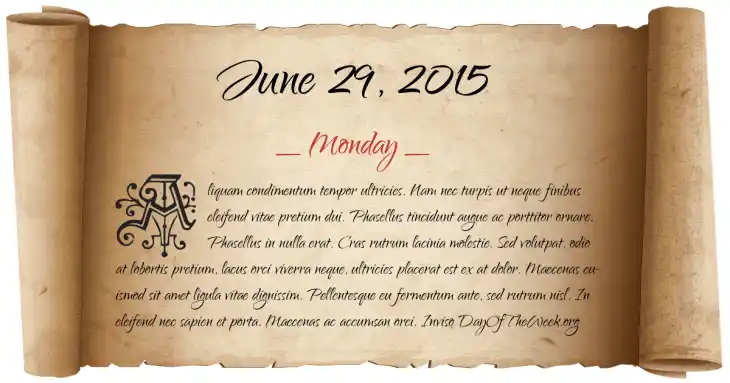 June 29, 2015
_ Monday _
Aliquam condimentum tempor ultricies. Nam nec turpis ut neque finibus
eleifend vitae pretium dui. Phasellus tincidunt augue ac porttitor ornare.
Phasellus in nulla erat. Cras rutrum lacinia molestie. Sed volutpat, odio
at lobortis pretium, lacus orci viverra neque, ultricies placerat est ex at dolor. Maecenas eu-
ismod sit amet ligula vitae dignissim. Pellentesque eu fermentum ante, sed rutrum nisl. In
eleifend nec sapien et porta. Maecenas ac accumsan orci. Invise DayOfTheWeek.org